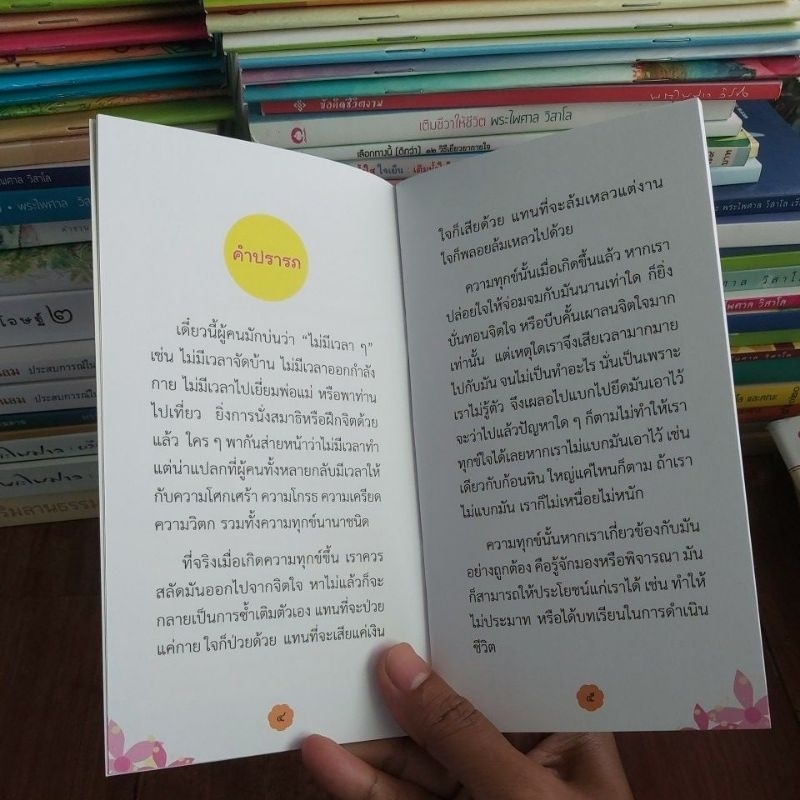 ข้อคิดชีวิตงาม
เติมชีวาให้ชีวิต พระไพศาล วิสาโล
เลือกทางนี้ (ดีกว่า) ๑๒ วิธีเยียวยากายใจ
ไพศาล วิสาโล
พระไพศาล วิสาโล
โจทย์ ๒
ประสบการณ์ใน
ประสบการณ์ใน
คำปรารภ
เดี๋ยวนี้ผู้คนมักบ่นว่า “ไม่มีเวลา ๆ”
เช่น ไม่มีเวลาจัดบ้าน ไม่มีเวลาออกกำลัง
กาย ไม่มีเวลาไปเยี่ยมพ่อแม่ หรือพาท่าน
ไปเที่ยว ยิ่งการนั่งสมาธิหรือฝึกจิตด้วย
แล้ว ใคร ๆ พากันส่ายหน้าว่าไม่มีเวลาทำ
แต่น่าแปลกที่ผู้คนทั้งหลายกลับมีเวลาให้
กับความโศกเศร้า ความโกรธ ความเครียด
ความวิตก รวมทั้งความทุกข์นานาชนิด
ที่จริงเมื่อเกิดความทุกข์ขึ้น เราควร
สลัดมันออกไปจากจิตใจ หาไม่แล้วก็จะ
กลายเป็นการซ้ำเติมตัวเอง แทนที่จะป่วย
แค่กาย ใจก็ป่วยด้วย แทนที่จะเสียแค่เงิน
๔
ใจก็เสียด้วย แทนที่จะล้มเหลวแต่งาน
ใจก็พลอยล้มเหลวไปด้วย
ความทุกข์นั้นเมื่อเกิดขึ้นแล้ว หากเรา
ปล่อยใจให้จ่อมจมกับมันนานเท่าใด ก็ยิ่ง
บั่นทอนจิตใจ หรือบีบคั้นเผาลนจิตใจมาก
เท่านั้น แต่เหตุใดเราจึงเสียเวลามากมาย
ไปกับมัน จนไม่เป็นทำอะไร นั่นเป็นเพราะ
เราไม่รู้ตัว จึงเผลอไปแบกไปยึดมันเอาไว้
จะว่าไปแล้วปัญหาใด ๆ ก็ตามไม่ทำให้เรา
ทุกข์ใจได้เลยหากเราไม่แบกมันเอาไว้ เช่น
เดียวกับก้อนหิน ใหญ่แค่ไหนก็ตาม ถ้าเรา
ไม่แบกมัน เราก็ไม่เหนื่อยไม่หนัก
ความทุกข์นั้นหากเราเกี่ยวข้องกับมัน
อย่างถูกต้อง คือรู้จักมองหรือพิจารณา มัน
ก็สามารถให้ประโยชน์แก่เราได้ เช่น ทำให้
ไม่ประมาท หรือได้บทเรียนในการดำเนิน
ชีวิต
๕